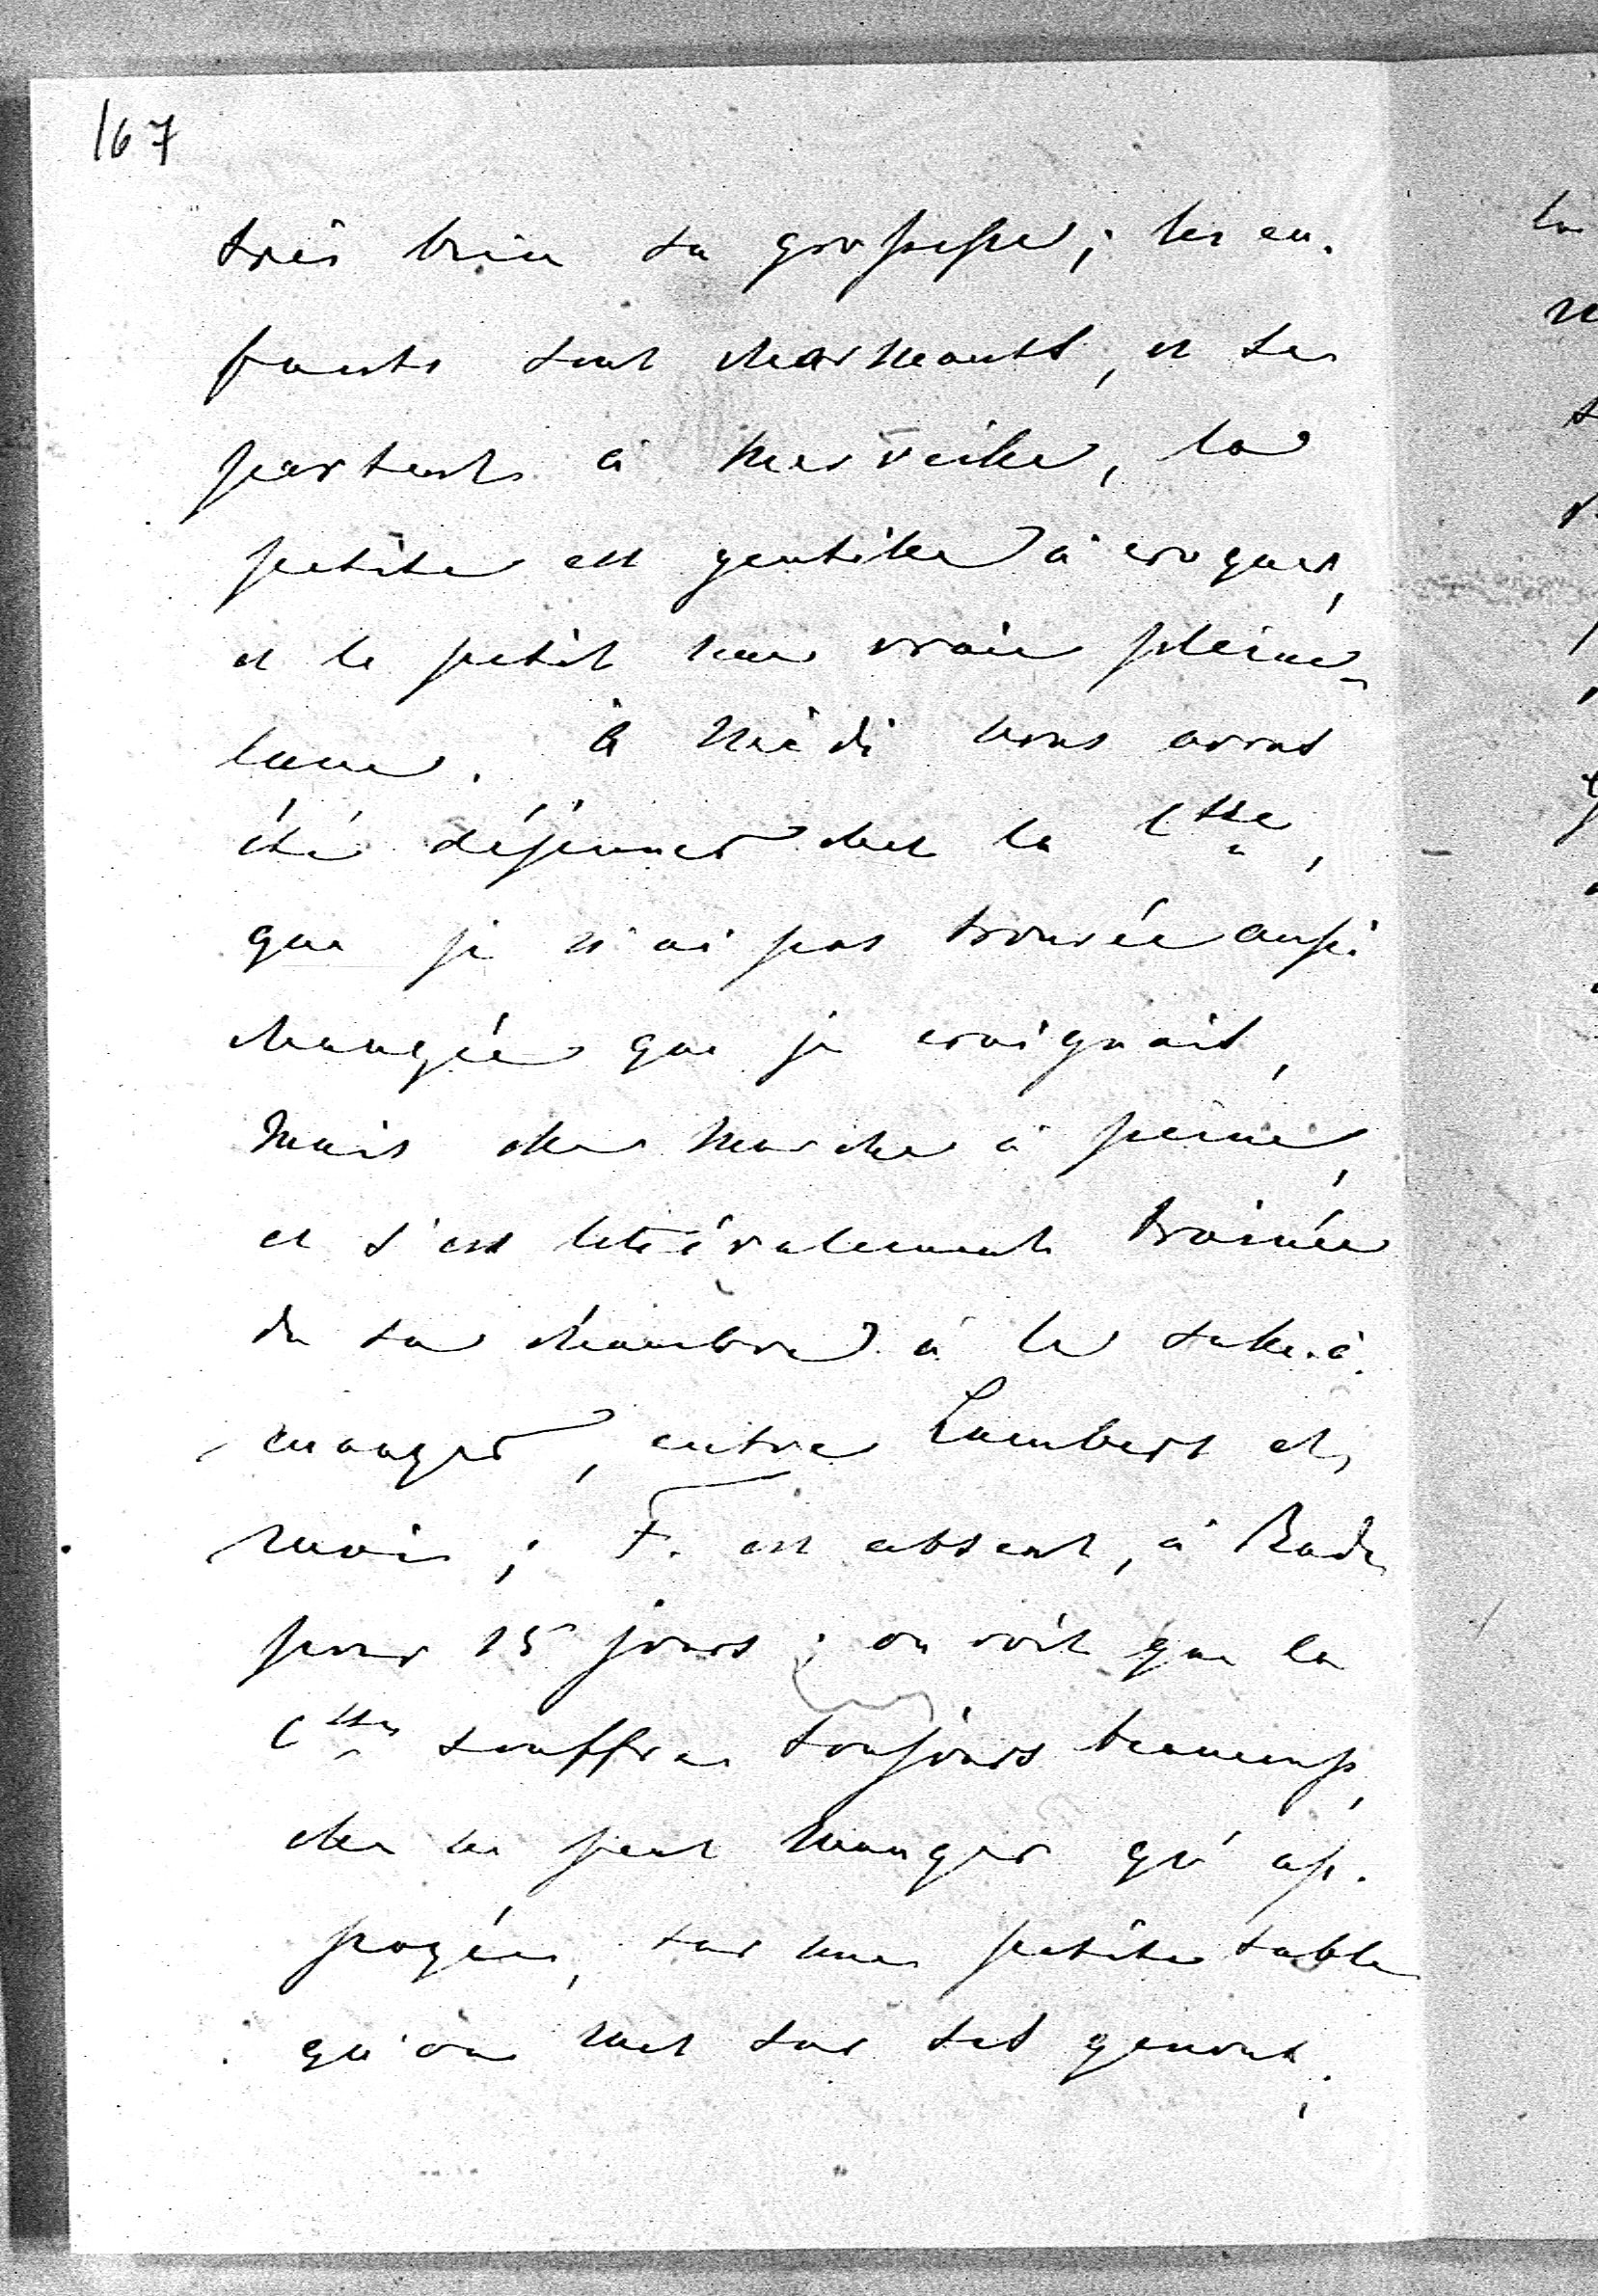 167
très bien sa grossesse ; les en-
fants sont charmants, et se
portent à merveille, la
petite est gentille à croquer,
et le petit une vraie pleine-
lune. à midi nous avons
été déjeuner chez la Ctsse,
que je n'ai pas trouvée aussi
changée que je craignais,
mais elle marche à peine,
et s'est littéralement trainée
de sa chambre à la salle-à-
manger, entre Lambert et
moi ; F. est absent, à Bade
pour 15 jours ; on voit que la
Ctsse souffre toujours beaucoup,
elle ne peut manger qu'ap-
poyée, sur une petite table
qu'on met sur ses genoux ;